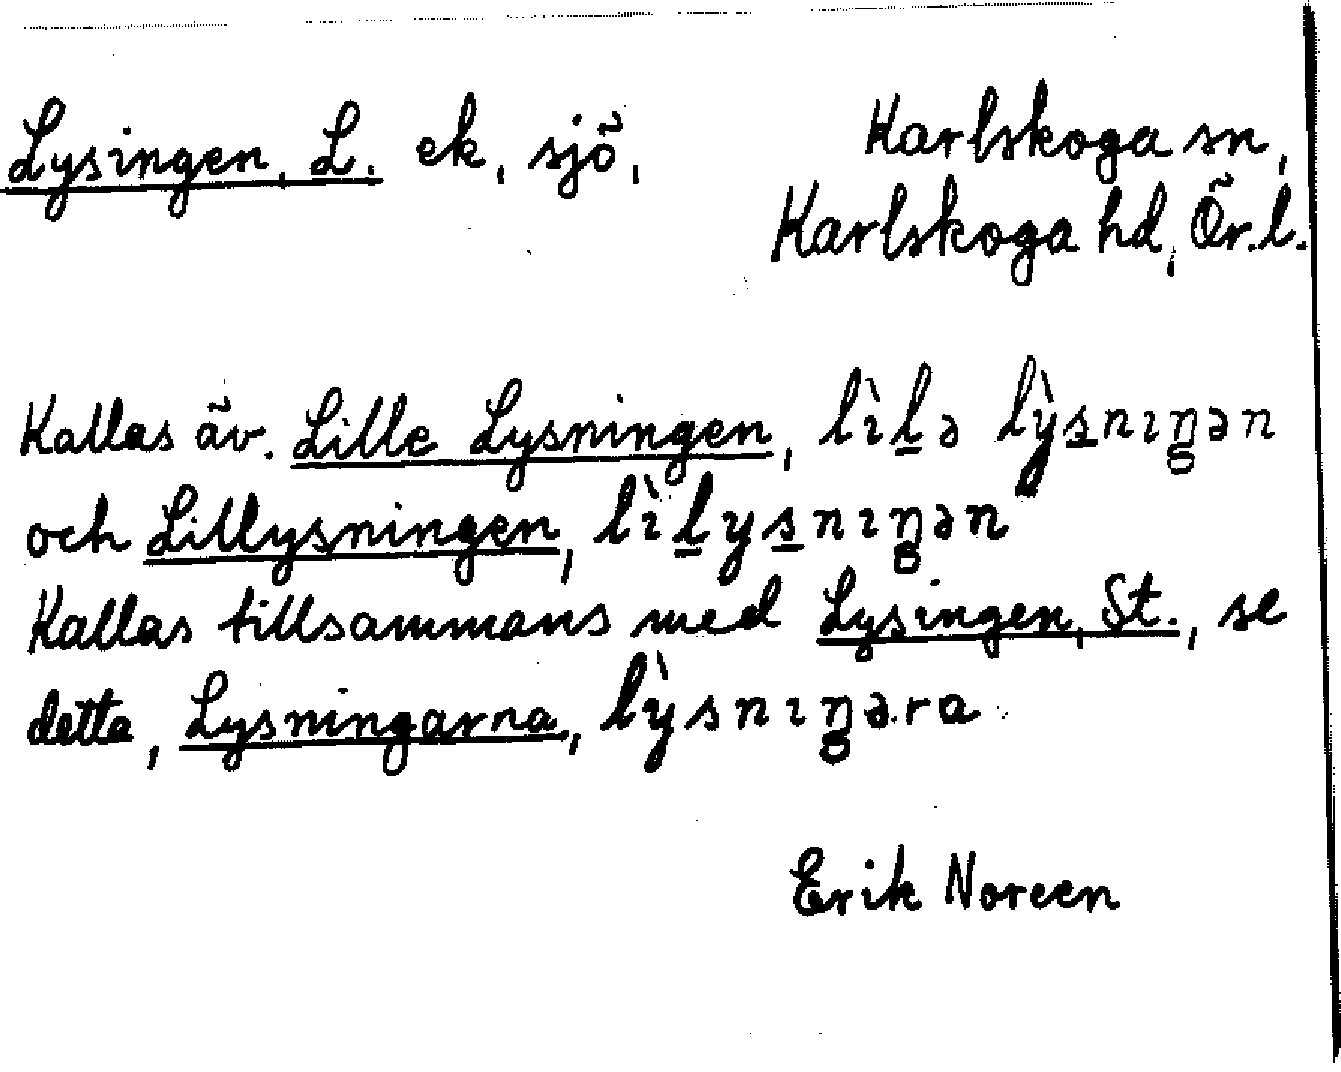 Lysingen, L. ek, sjö, Karlskoga sn,
Karlskoga hd, Ör.l.
Kallas äv. Lille Lysningen, lìl̠ə lỳs̠nıŋən
och Lillysningen, lìl̠ys̠nıŋən
Kallas tillsammans med Lysingen, St., se
detta, Lysningarna, lỳsnıŋəra
Erik Noreen